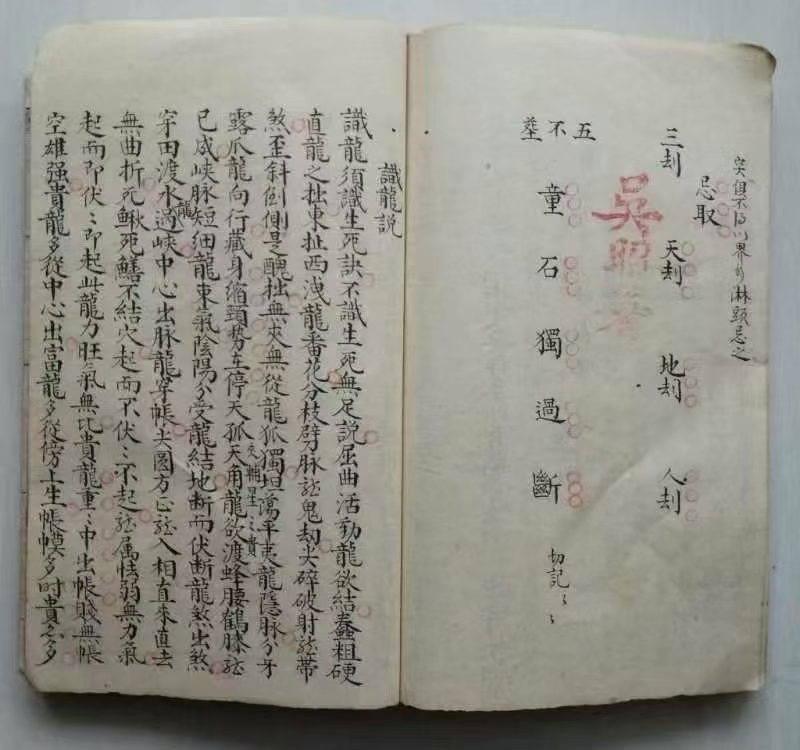 忌之
忌取
三刦 天刦 地刦 人刦
吳昭
五不塟
童石獨過斷 切記〻〻
識龍説
識龍須識生死訣不識生死無足説屈曲活動龍欲結蠢粗硬
直龍之拙東扯西洩龍番花分枝劈脉龍鬼刼尖碎破射龍帶
煞歪斜倒側是醜拙無夾無從龍孤獨坦蕩平夷龍隱脉分牙
露爪龍向行藏身縮頸勢在停天孤天角龍欲渡蜂腰鶴膝龍
夾輔星之貴
已成峽脉短細龍東氣陰陽分受龍結地断而伏断龍煞出煞
穿田渡水龍過峽中心出脉龍穿帳尖圓方正龍入相直來直去
無曲折死鰍死鱔不結穴起而不伏〻不起龍属怯弱無力氣
起而即伏〻即起此龍力旺氣無比貴龍重〻中出帳賤無帳
空雄强貴龍多從中心出富龍多從傍上生帳幙多時貴亦多